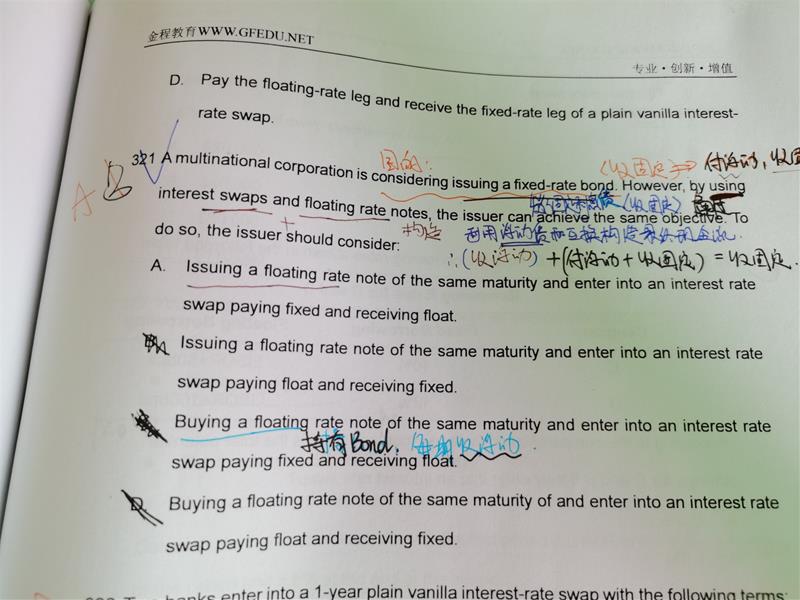 金程教育 WWW.GFEDU.NET
专业·创新·增值
D. Pay the floating-rate leg and receive the fixed-rate leg of a plain vanilla interest-
rate swap.
目的: (收固定) ⇒ 付浮动, 收固
321 A multinational corporation is considering issuing a fixed-rate bond. However, by using
A B
(收固定)
interest swaps and floating rate notes, the issuer can achieve the same objective. To
构造 利用浮动债和互换构造
do so, the issuer should consider:
∴ (收浮动) + (付浮动 + 收固定) = 收固定.
A. Issuing a floating rate note of the same maturity and enter into an interest rate
swap paying fixed and receiving float.
Issuing a floating rate note of the same maturity and enter into an interest rate
swap paying float and receiving fixed.
Buying a floating rate note of the same maturity and enter into an interest rate
持有Bond, 每期收浮动.
swap paying fixed and receiving float.
D. Buying a floating rate note of the same maturity of and enter into an interest rate
swap paying float and receiving fixed.
banks enter into a 1-year plain vanilla interest-rate swap with the following terms: